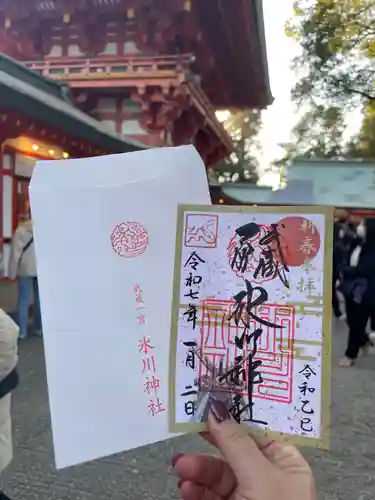 武蔵一宮
氷川神社
新春奉拝
武蔵
一宮
氷川神社
令和七年
一月二日
令和乙巳